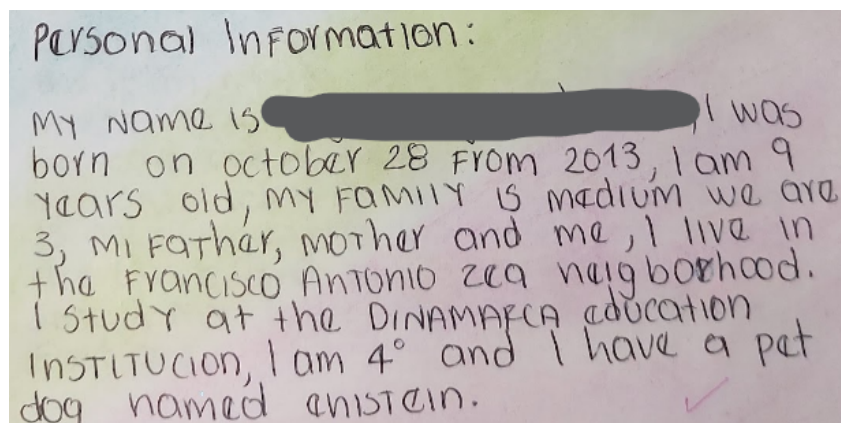 Personal Information:
My name is , I was
born on october 28 From 2013, I am 9
years old, my Family is medium we are
3, mi Father, mother and me, I live in
the Francisco Antonio zea neigborhood.
I study at the DINAMARCA education
institucion, I am 4° and I have a pet
dog named enistein.